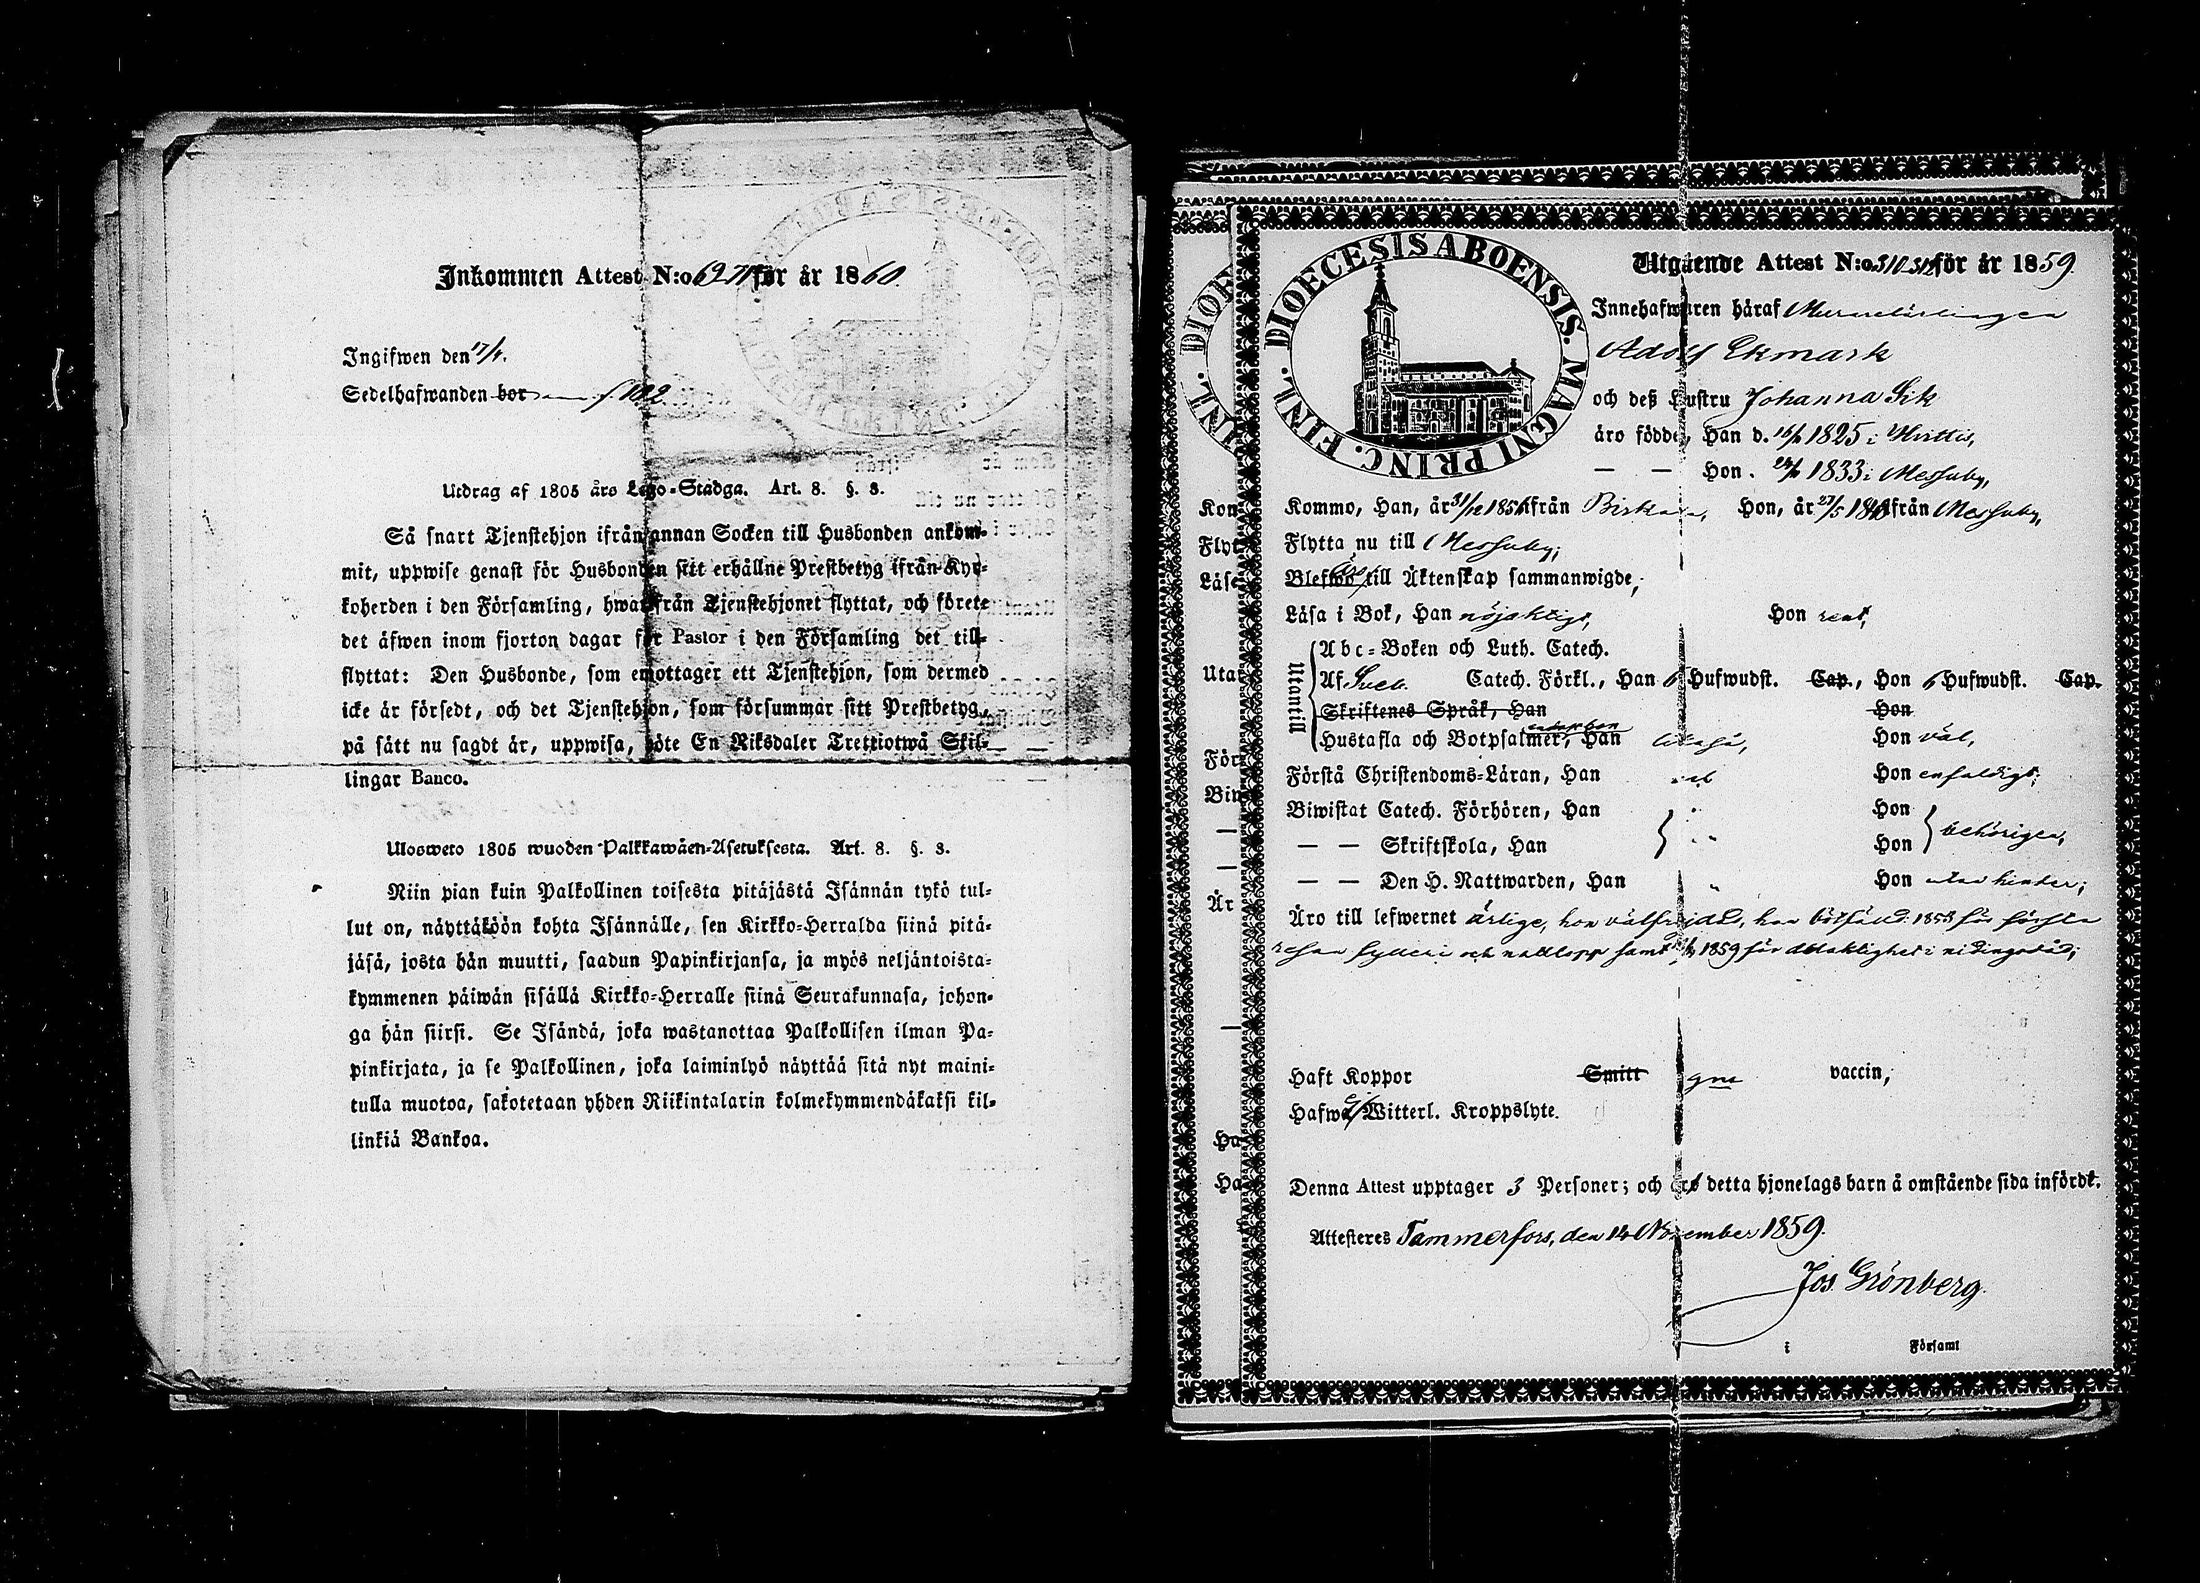 Inkommen Attest N:o 69-71 för år 1860.
Ingifwen den 17/4.
Sedelhafwanden bor
Utdrag af 1805 års Lego-Stadga. Art. 8. §. 3.
Så snart Tjenstehjon ifrån annan Socken till Husbonden ankom-
mit, uppwise genast för Husbonden sitt erhållne Prestbetyg ifrån Kyr-
koherden i den Församling, hwarifrån Tjenstehjonet flyttat, och förete
det äfwen inom fjorton dagar för Pastor i den Församling det till-
flyttat: Den Husbonde, som emottager ett Tjenstehjon, som dermed
icke är försedt, och det Tjenstehjon, som försummar sitt Prestbetyg,
på sätt nu sagdt är, uppwisa, böte En Riksdaler Trettiotwå Skil-
lingar Banco.
Uloswето 1805 wuoden Palkkawäen-Asetuksesta. Art. 8. §. 3.
Niin pian kuin Palkollinen toisesta pitäjästä Isännän tykö tul-
lut on, näyttäköön kohta Isännälle, sen Kirkko-Herralda siinä pitä-
jäsä, josta hän muutti, saadun Papinkirjansa, ja myös neljäntoista-
kymmenen päiwän sisällä Kirkko-Herralle siinä Seurakunnasa, johon-
ga hän siirsi. Se Isändä, joka wastanottaa Palkollisen ilman Pa-
pinkirjata, ja se Palkollinen, joka laiminlyö näyttää sitä nyt maini-
tulla muotoa, sakotetaan yhden Riikintalarin kolmekymmendäkaksi kil-
linkiä Bankoa.
DIOECESIS ABOENSIS. MAGNI PRINC. FINL.
Utgående Attest N:o 310-312 för år 1859.
Innehafwaren häraf
Adolf Ekmark
och deß Hustru Johanna Sik
äro födde, Han d. 1825 i
— — Hon. 1833 i Messuby,
Kommo, Han, år 31/12 185 från Hon, år 27/5 18 från Messuby,
Flytta nu till Messuby;
Blefwo till Äktenskap sammanwigde;
Läsa i Bok, Han nöjaktigt, Hon rent,
Utantill
Abc-Boken och Luth. Catech.
Af Sveb. Catech. Förkl., Han 6 Hufwudst. Cap., Hon 6 Hufwudst. Cap.
Skriftenes Språk, Han Hon
Hustafla och Botpsalmer, Han Hon väl,
Förstå Christendoms-Läran, Han Hon enfaldigt;
Biwistat Catech. Förhören, Han Hon
— — Skriftskola, Han Hon behörigen,
— — Den H. Nattwarden, Han Hon utan hinder;
Äro till lefwernet ärlige, hon välfrejdad, han bötfälld 1858 för första
resan fylleri och samt 1859 för delaktighet i
Haft Koppor Smitt gm vaccin,
Hafwa ej Witterl. Kroppslyte.
Denna Attest upptager 3 Personer; och detta hjonelags barn å omstående sida infördt.
Attesteres Tammerfors, den 14 November 1859.
Jos Grönberg.
i Församl